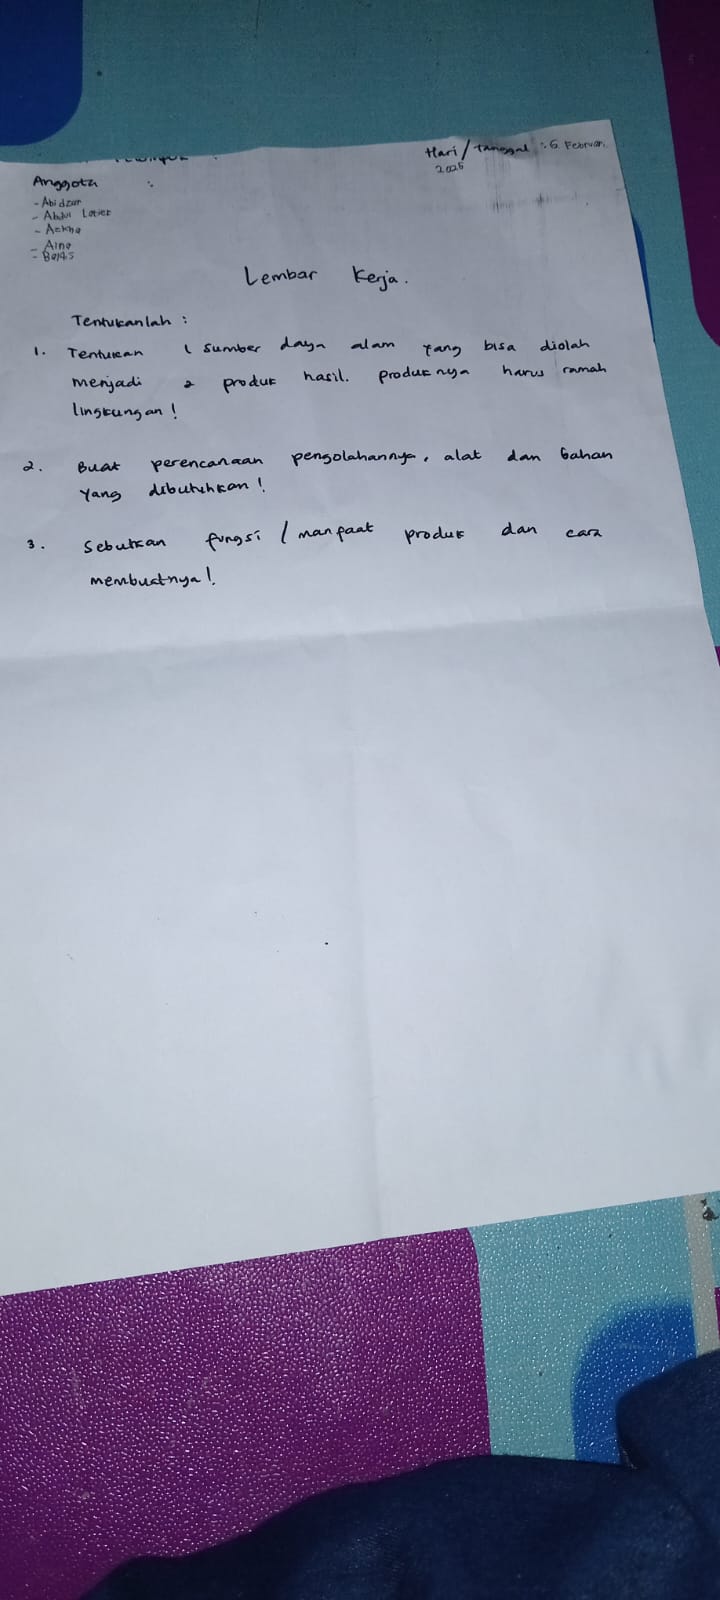 Hari/Tanggal : 6 Februari
2025
Anggota :
- Abidzar
- Abdul Latief
- Azkha
- Aino
Lembar Kerja.
Tentukanlah :
1. Tentukan 1 sumber daya alam yang bisa diolah
menjadi 2 produk hasil. produknya harus ramah
lingkungan!
2. Buat perencanaan pengolahannya, alat dan bahan
yang dibutuhkan!
3. Sebutkan fungsi/manfaat produk dan cara
membuatnya!